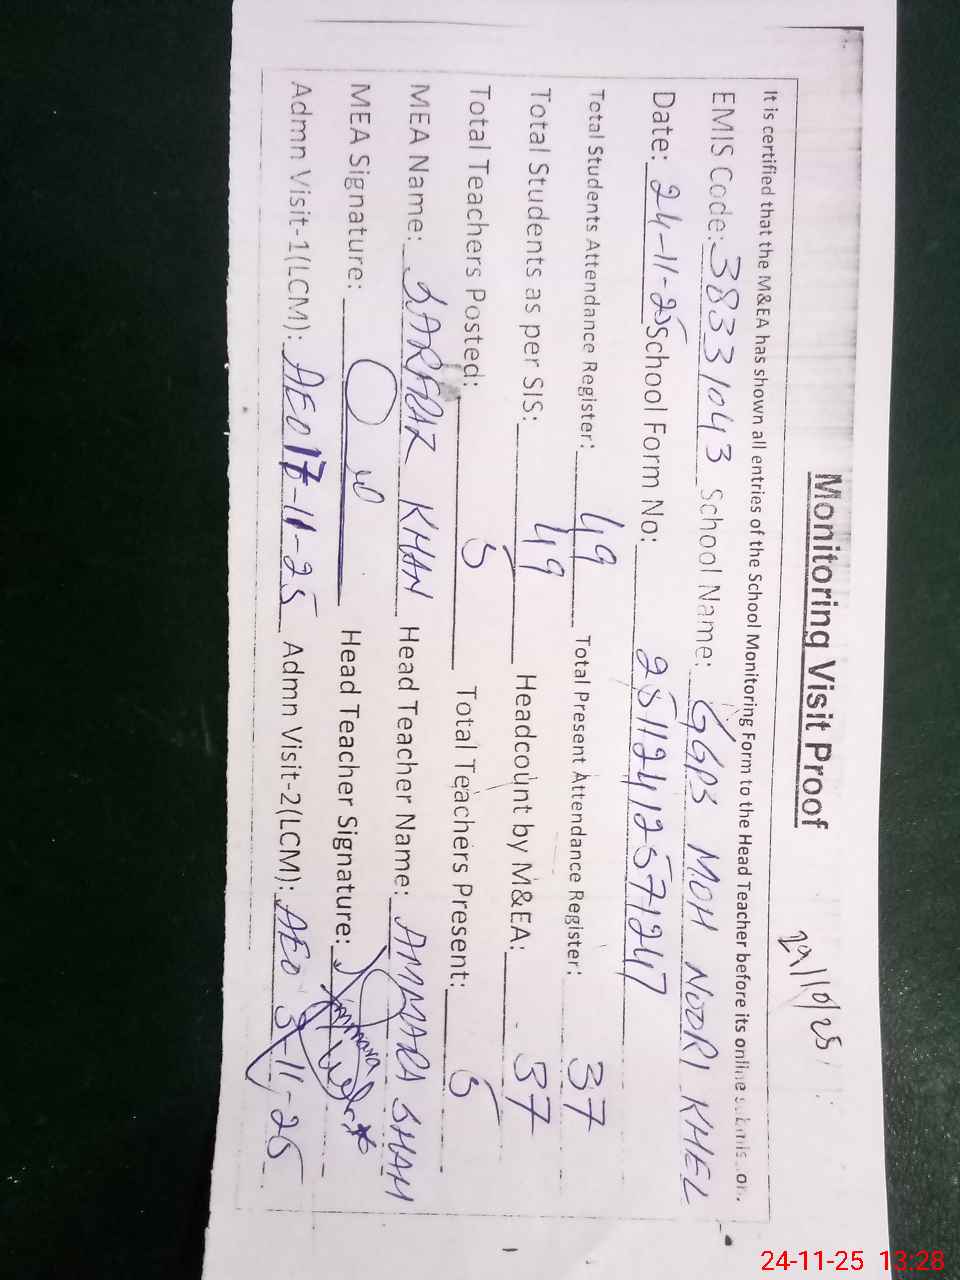 Monitoring Visit Proof
29/10/25
It is certified that the M&EA has shown all entries of the School Monitoring Form to the Head Teacher before its online submission.
EMIS Code: 38331043 School Name: GGPS MOH NOORI KHEL
Date: 24-11-25 School Form No: 25112412571247
Total Students Attendance Register: 49 Total Present Attendance Register: 37
Total Students as per SIS: 49 Headcount by M&EA: 37
Total Teachers Posted: 5 Total Teachers Present: 5
MEA Name: SARFRAZ KHAN Head Teacher Name: AMMARA SHAH
MEA Signature: Head Teacher Signature:
Admn Visit-1(LCM): AEO 17-11-25 Admn Visit-2(LCM): AEO 3-11-25
24-11-25 13:28